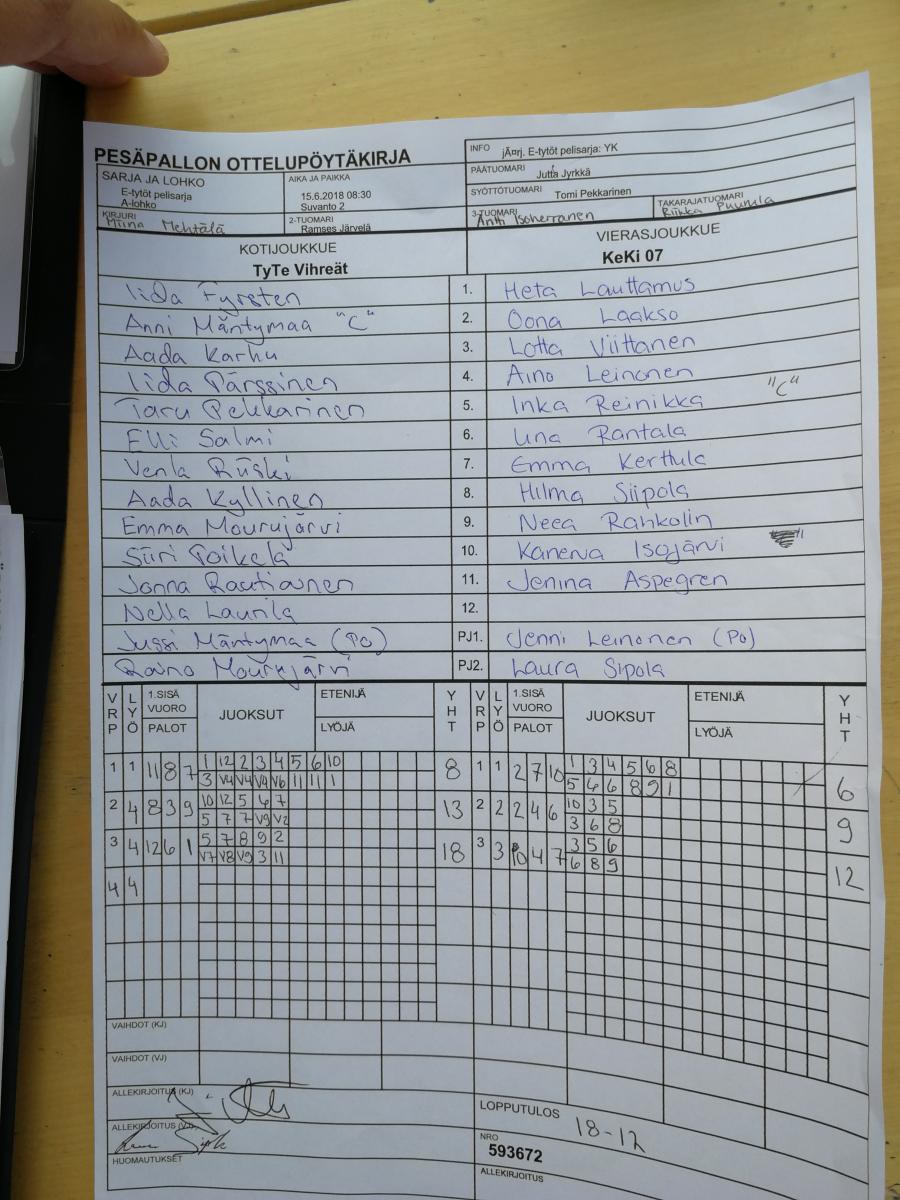 PESÄPALLON OTTELUPÖYTÄKIRJA
INFO jÃ¤rj. E-tytöt pelisarja: YK
PÄÄTUOMARI Jutta Jyrkkä
SYÖTTÖTUOMARI Tomi Pekkarinen
SARJA JA LOHKO
E-tytöt pelisarja
A-lohko
AIKA JA PAIKKA
15.6.2018 08:30
Suvanto 2
KIRJURI
Miina Mehtälä
2-TUOMARI
Ramses Järvelä
3-TUOMARI
Antti Isoherranen
TAKARAJATUOMARI
Riikka Puurula
KOTIJOUKKUE
TyTe Vihreät
VIERASJOUKKUE
KeKi 07
Iida Fyrsten 1. Heta Lauttamus
Anni Mäntymaa "C" 2. Oona Laakso
Aada Karhu 3. Lotta Viittanen
Iida Pärssinen 4. Aino Leinonen
Taru Pekkarinen 5. Inka Reinikka "C"
Elli Salmi 6. Una Rantala
Venla Riiski 7. Emma Kerttula
Aada Kyllinen 8. Hilma Siipola
Emma Mourujärvi 9. Neea Rahkolin
Siiri Poikela 10. Kanerva Isojärvi
Jonna Rautiainen 11. Jenina Aspegren
Nella Laurila 12.
Jussi Mäntymaa (Po) PJ1. Jenni Leinonen (Po)
Raino Mourujärvi PJ2. Laura Sipola
VRP LYÖ 1.SISÄ VUORO PALOT JUOKSUT ETENIJÄ LYÖJÄ YHT VRP LYÖ 1.SISÄ VUORO PALOT JUOKSUT ETENIJÄ LYÖJÄ YHT
1 1 11 8 7 1 12 2 3 4 5 6 10 8 1 1 2 7 10 1 3 4 5 6 8 6
3 V4 V4 V9 V6 11 11 1 5 6 6 8 9 1
2 4 8 3 9 10 12 5 6 7 13 2 2 2 4 6 10 3 5 9
5 7 7 V9 V2 3 6 8
3 4 12 6 1 5 7 8 9 2 18 3 3 10 4 7 3 5 6 12
V7 V8 V9 3 11 6 8 9
4 4
VAIHDOT (KJ)
VAIHDOT (VJ)
ALLEKIRJOITUS (KJ)
ALLEKIRJOITUS (VJ)
HUOMAUTUKSET
LOPPUTULOS 18-12
NRO
593672
ALLEKIRJOITUS